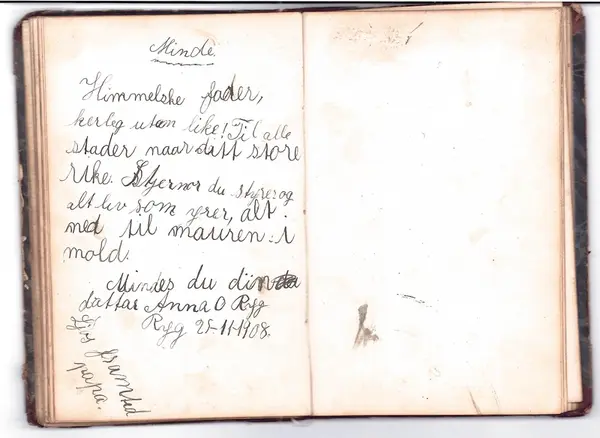 Minde.
Himmelske fader,
kerleg utan like! Til alle
stader naar ditt store
rike. Stjernor du styrer og
alt liv som yrer, alt
ned til mauren i
mold.
Mindes du din
dattar Anna O Ryg
Ryg 25-11-1908.
framtid
papa.